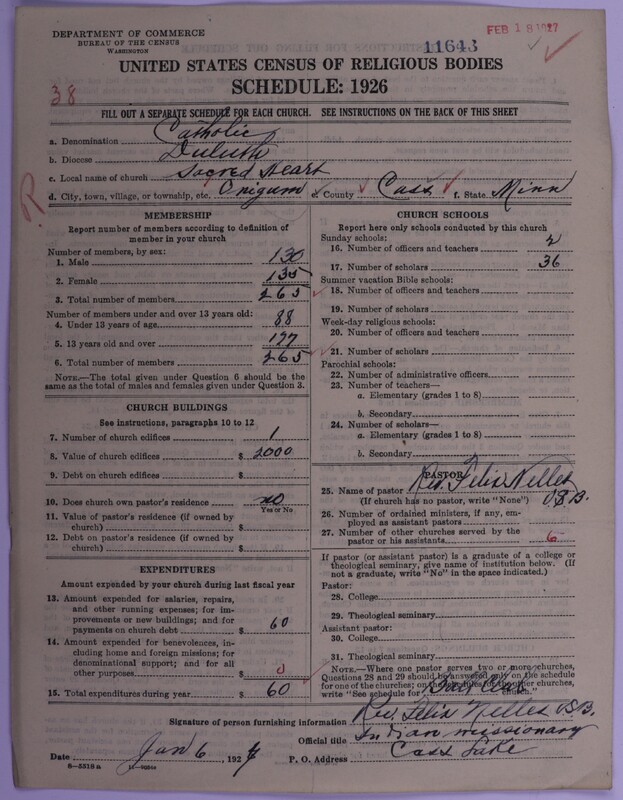 DEPARTMENT OF COMMERCE
BUREAU OF THE CENSUS
WASHINGTON
11643
FEB 18 1927
UNITED STATES CENSUS OF RELIGIOUS BODIES
SCHEDULE: 1926
38
FILL OUT A SEPARATE SCHEDULE FOR EACH CHURCH. SEE INSTRUCTIONS ON THE BACK OF THIS SHEET
a. Denomination Catholic
b. Diocese Duluth
c. Local name of church Sacred Heart
d. City, town, village, or township, etc. Onigum e. County Cass f. State Minn
R
MEMBERSHIP
Report number of members according to definition of
member in your church
Number of members, by sex:
1. Male 130
2. Female 135
3. Total number of members 265
Number of members under and over 13 years old:
4. Under 13 years of age 88
5. 13 years old and over 177
6. Total number of members 265
NOTE.—The total given under Question 6 should be
same as the total of males and females given under Question 3.
CHURCH BUILDINGS
See instructions, paragraphs 10 to 12
7. Number of church edifices 1
8. Value of church edifices $ 2000
9. Debt on church edifices $
10. Does church own pastor's residence no
Yes or No
11. Value of pastor's residence (if owned by
church) $
12. Debt on pastor's residence (if owned by
church) $
EXPENDITURES
Amount expended by your church during last fiscal year
13. Amount expended for salaries, repairs,
and other running expenses; for im-
provements or new buildings; and for
payments on church debt $ 60
14. Amount expended for benevolences, in-
cluding home and foreign missions; for
denominational support; and for all
other purposes $ 0
15. Total expenditures during year $ 60
CHURCH SCHOOLS
Report here only schools conducted by this church
Sunday schools:
16. Number of officers and teachers 2
17. Number of scholars 36
Summer vacation Bible schools:
18. Number of officers and teachers
19. Number of scholars
Week-day religious schools:
20. Number of officers and teachers
21. Number of scholars
Parochial schools:
22. Number of administrative officers
23. Number of teachers—
a. Elementary (grades 1 to 8)
b. Secondary
24. Number of scholars—
a. Elementary (grades 1 to 8)
b. Secondary
PASTOR
25. Name of pastor Rev. Felix Nelles O.S.B.
(If church has no pastor, write "None")
26. Number of ordained ministers, if any, em-
ployed as assistant pastors
27. Number of other churches served by the
pastor or his assistants 6
If pastor (or assistant pastor) is a graduate of a college or
theological seminary, give name of institution below. (If
not a graduate, write "No" in the space indicated.)
Pastor:
28. College
29. Theological seminary
Assistant pastor:
30. College
31. Theological seminary
NOTE.—Where one pastor serves two or more churches,
Questions 28 and 29 should be answered only on the schedule
for one of the churches; on the schedules for the other churches,
write "See schedule for church."
Signature of person furnishing information Rev. Felix Nelles OSB.
Official title Indian missionary
Date Jan 6, 1927 P. O. Address Cass Lake
8—5518 a